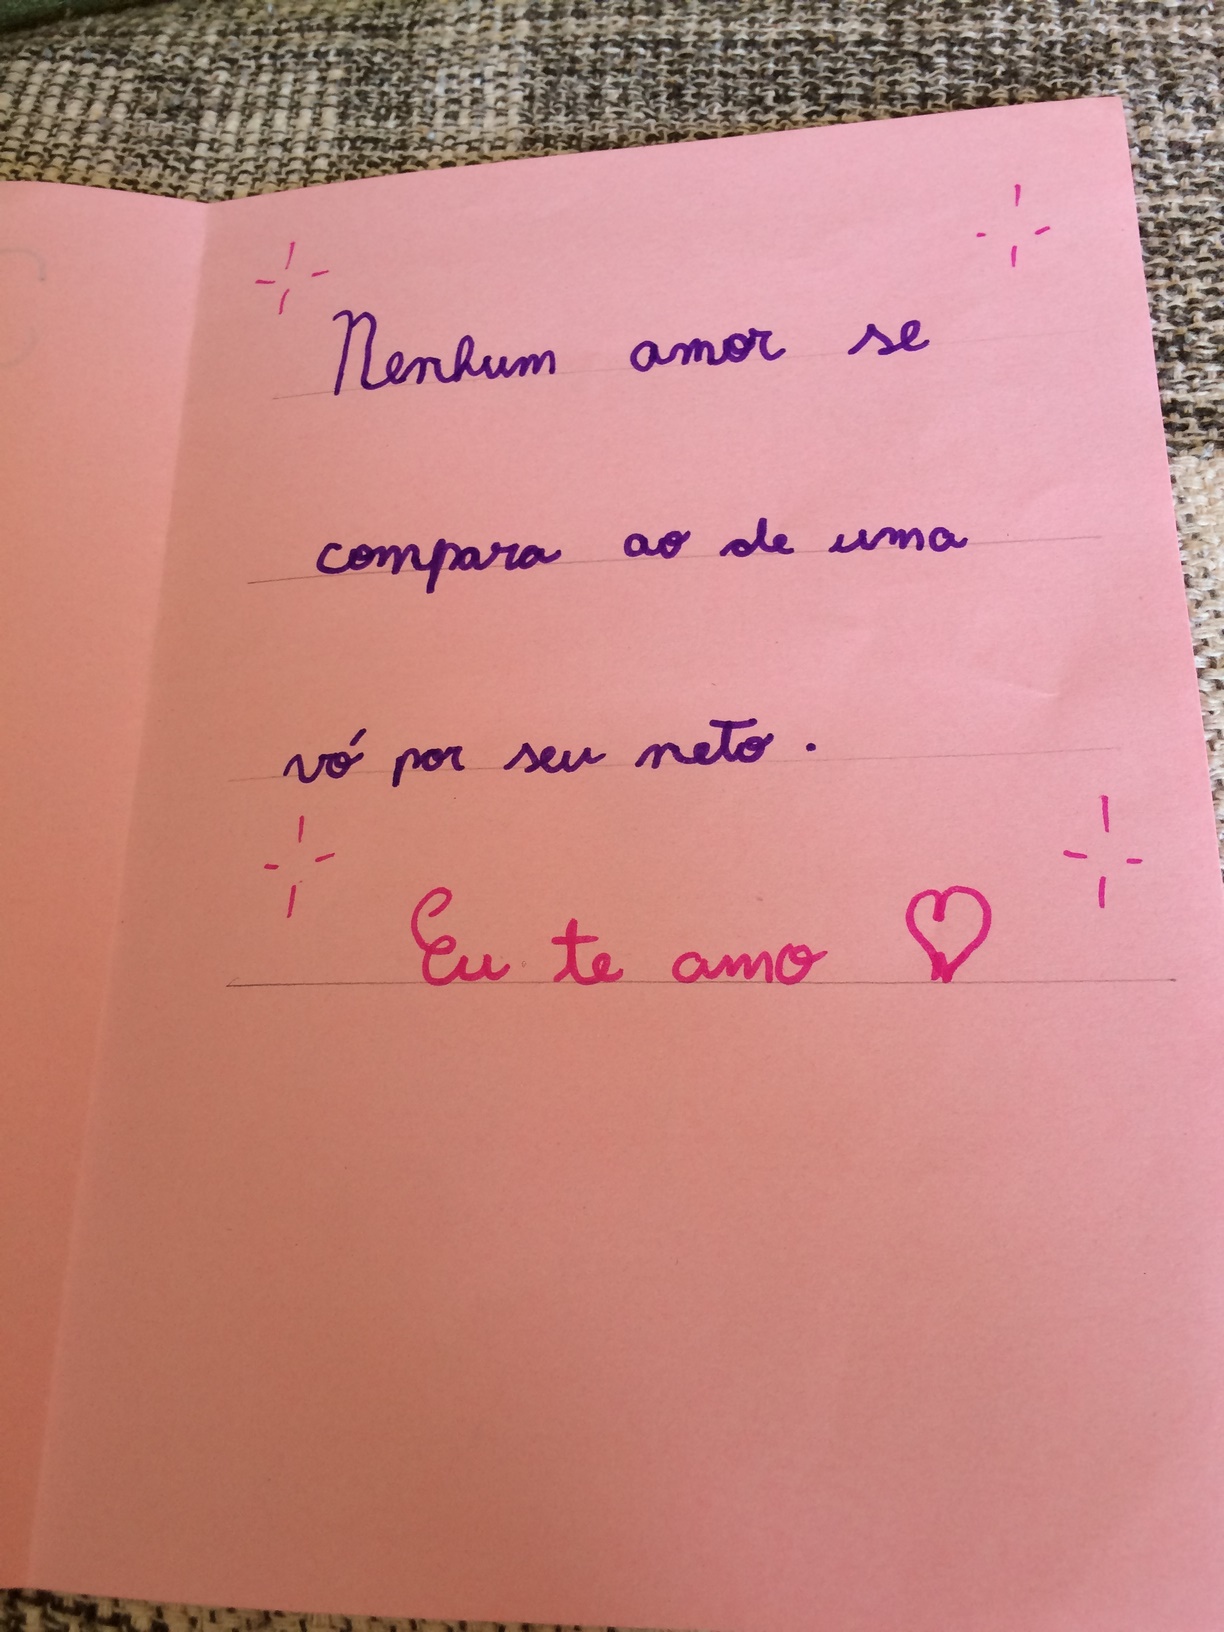 Nenhum amor se
compara ao de uma
vó por seu neto.
Eu te amo ♡